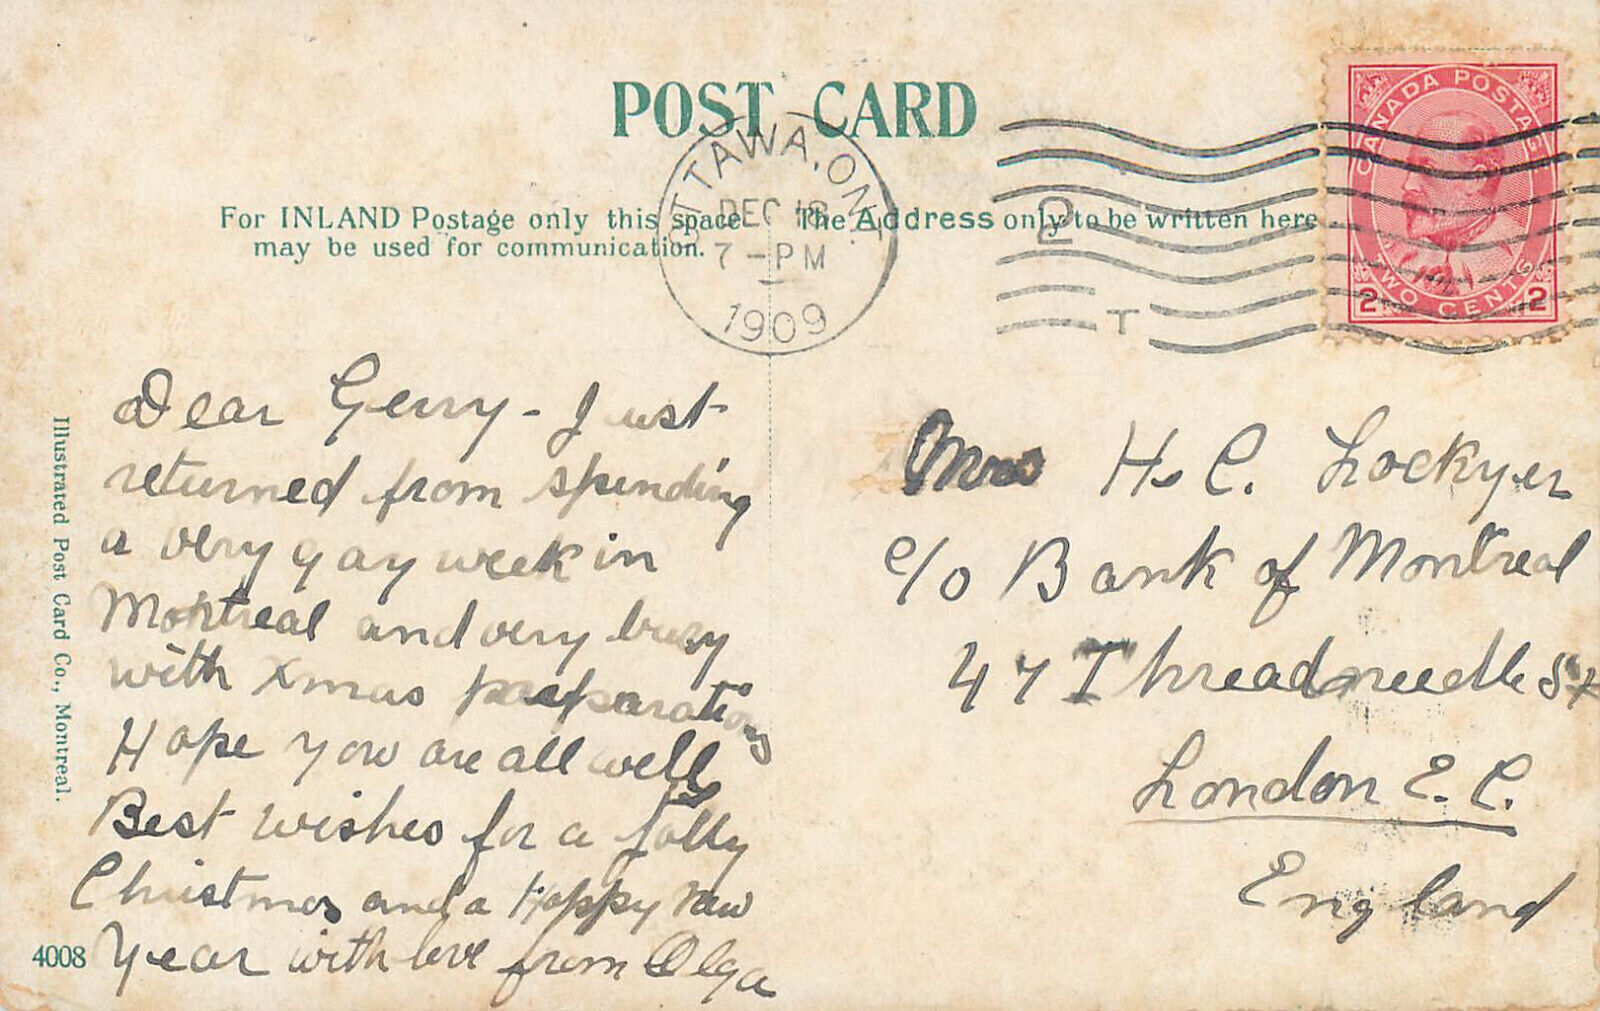 POST CARD
For INLAND Postage only this space
may be used for communication.
The Address only to be written here
OTTAWA, ONT.
DEC
7 - PM
1909
2
T
CANADA POSTAGE
2 TWO CENTS 2
Dear Gerry - Just
returned from spending
a very gay week in
Montreal and very busy
with Xmas preparations
Hope you are all well
Best wishes for a jolly
Christmas and a Happy New
Year with love from Olga
Mrs H. C. Lockyer
c/o Bank of Montreal
47 Threadneedle St
London E. C.
England
Illustrated Post Card Co., Montreal.
4008